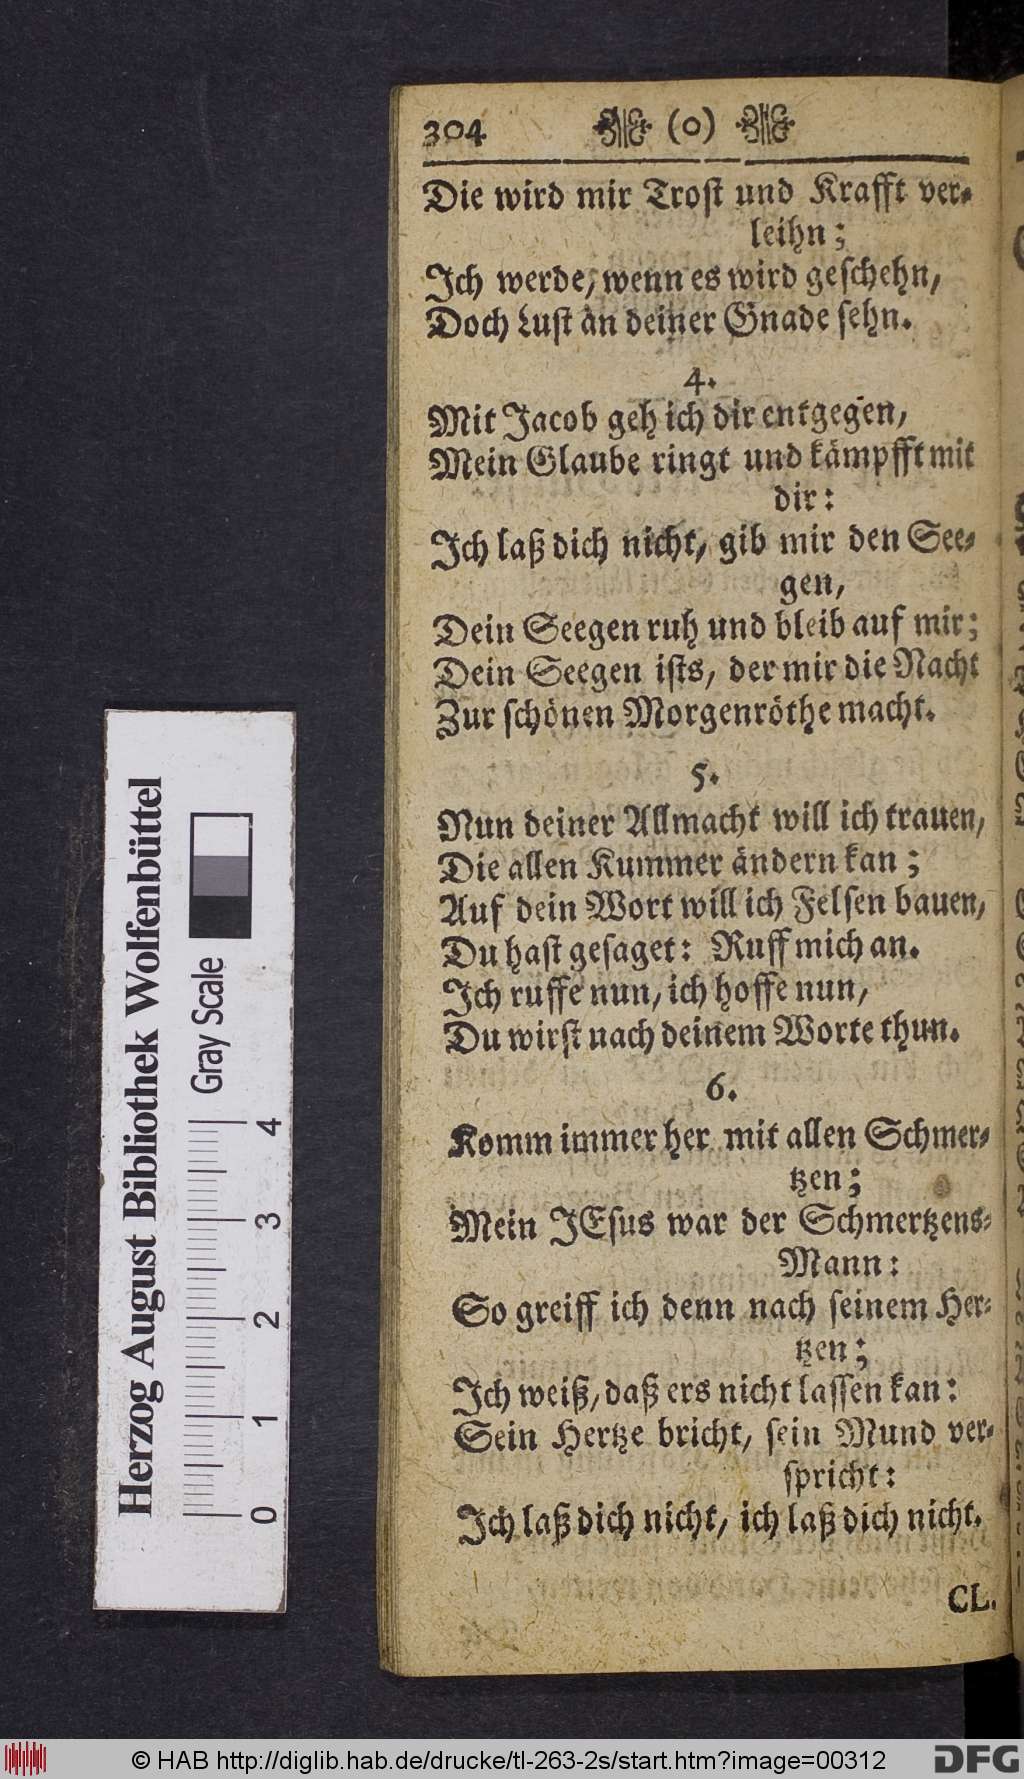 304 (o)
Die wird mir Trost und Krafft ver-
leihn;
Ich werde, wenn es wird geschehn,
Doch Lust an deiner Gnade sehn.
4.
Mit Jacob geh ich dir entgegen,
Mein Glaube ringt und kämpfft mit
dir:
Ich laß dich nicht, gib mir den See-
gen,
Dein Seegen ruh und bleib auf mir;
Dein Seegen ists, der mir die Nacht
Zur schönen Morgenröthe macht.
5.
Nun deiner Allmacht will ich trauen,
Die allen Kummer ändern kan;
Auf dein Wort will ich Felsen bauen,
Du hast gesaget: Ruff mich an.
Ich ruffe nun, ich hoffe nun,
Du wirst nach deinem Worte thun.
6.
Komm immer her mit allen Schmer-
tzen;
Mein JEsus war der Schmertzens-
Mann:
So greiff ich denn nach seinem Her-
tzen;
Ich weiß, daß ers nicht lassen kan:
Sein Hertze bricht, sein Mund ver-
spricht:
Ich laß dich nicht, ich laß dich nicht.
CL.
Herzog August Bibliothek Wolfenbüttel
Gray Scale
0 1 2 3 4
© HAB http://diglib.hab.de/drucke/tl-263-2s/start.htm?image=00312
DFG